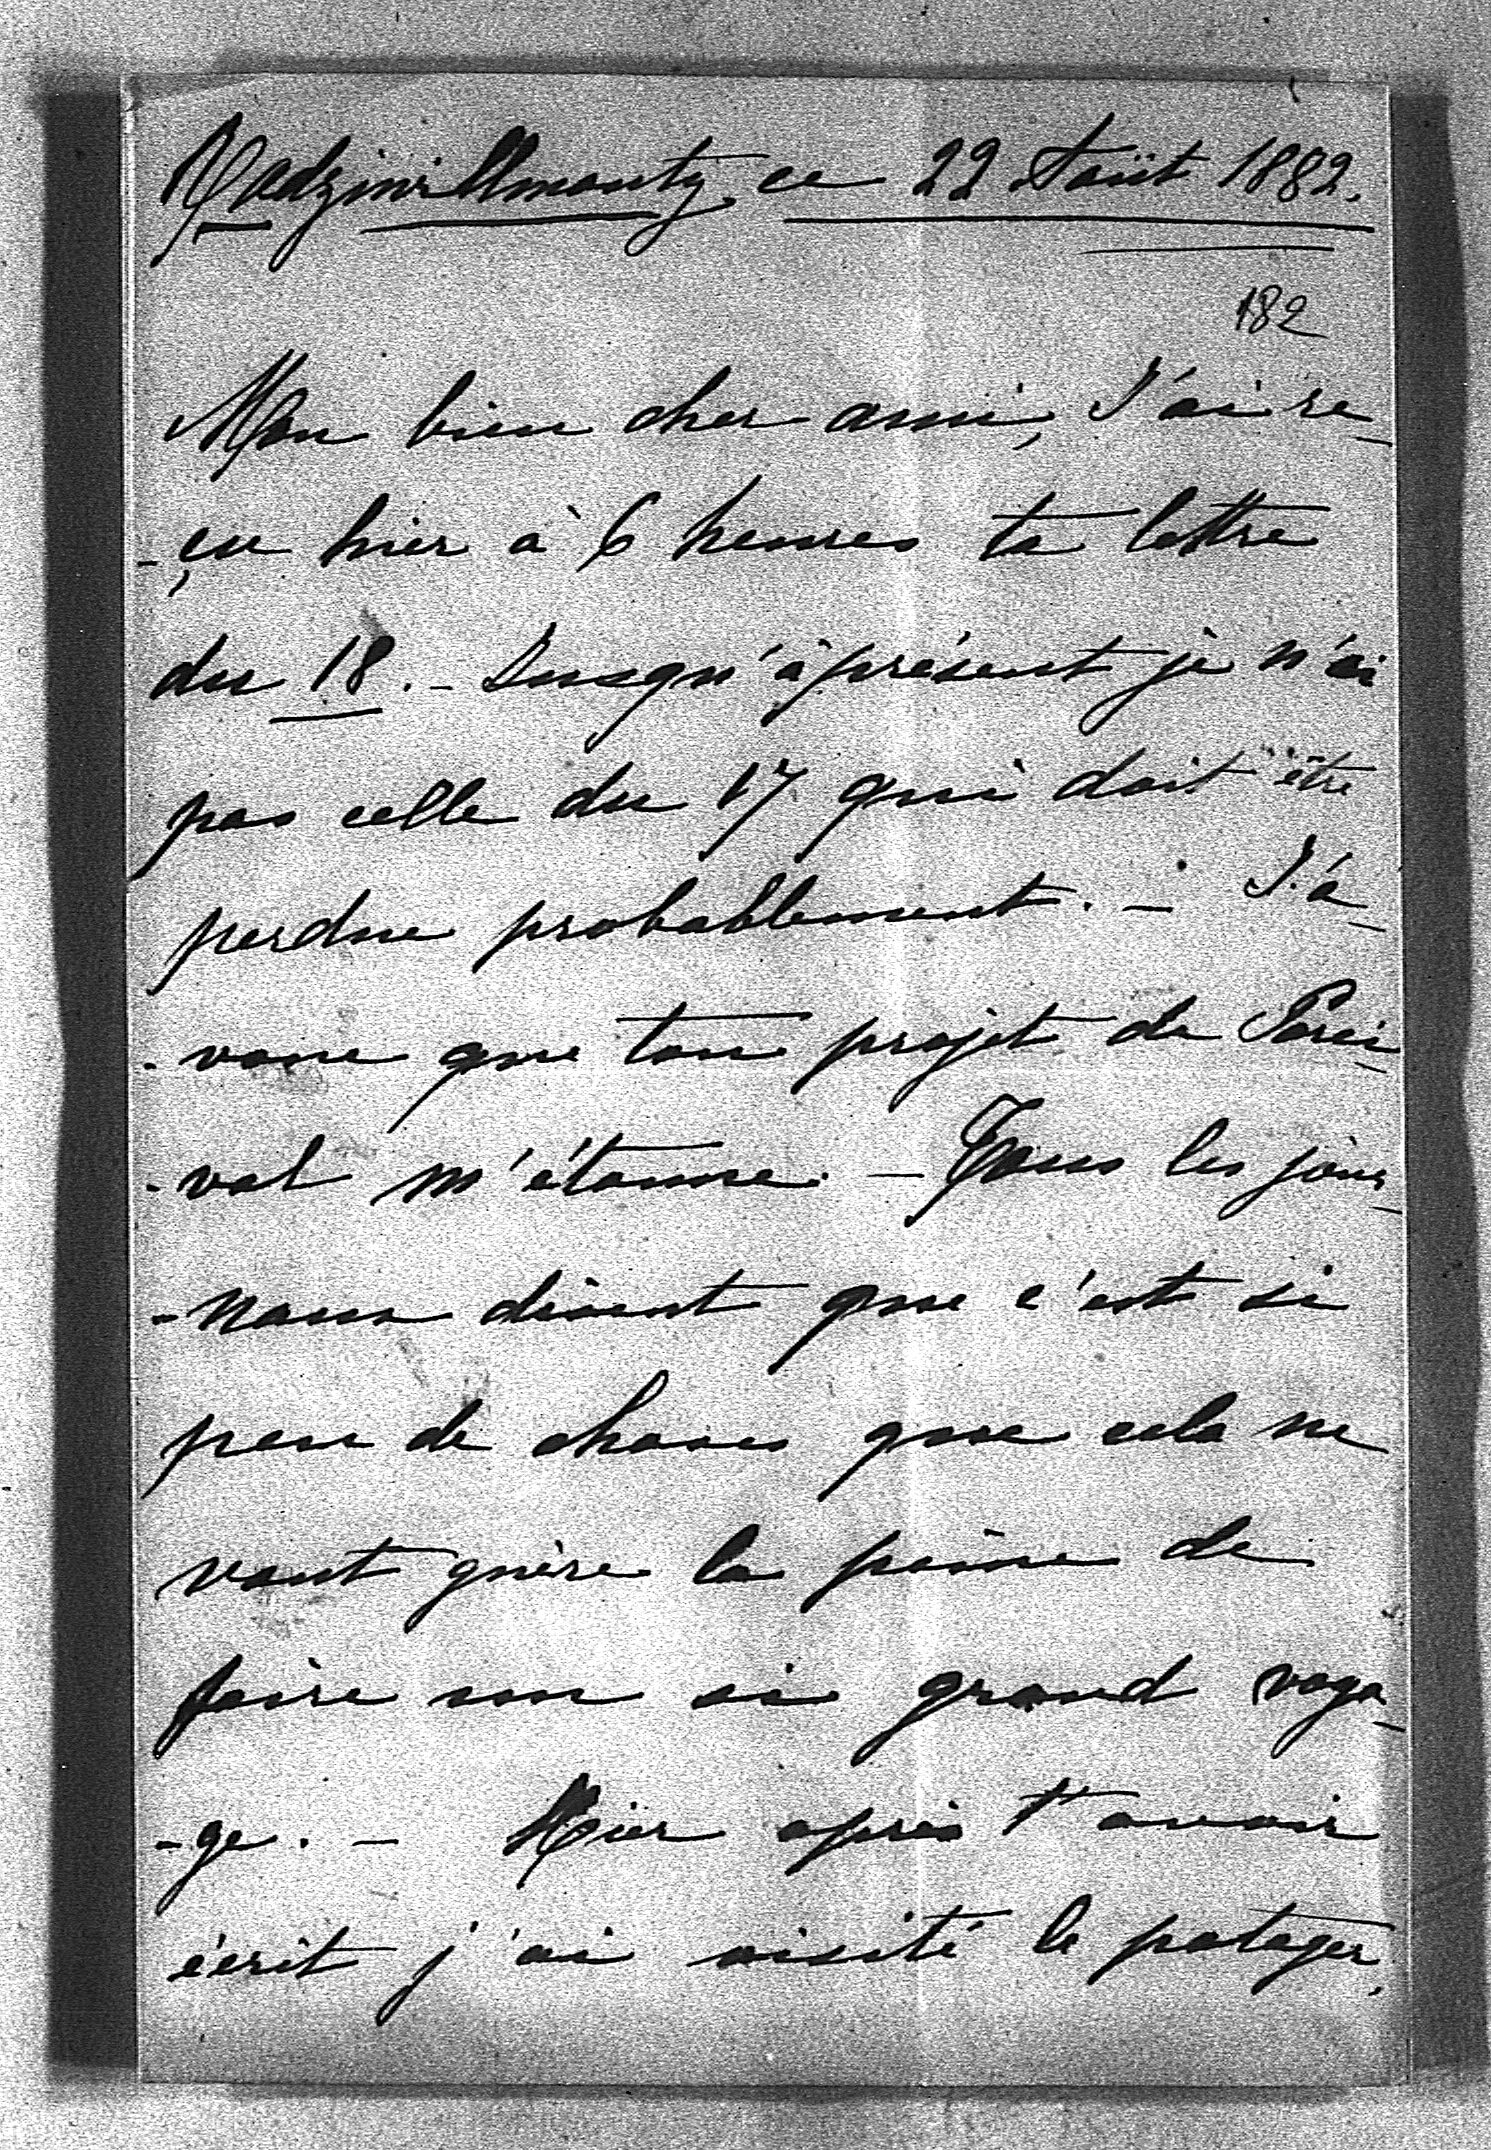 Radziwillmonty ce 22 Août 1882.
182
Mon bien cher ami, J'ai re-
-çu hier à 6 heures ta lettre
du 18. - Jusqu'à présent je n'ai
pas celle du 17 qui doit être
perdue probablement. - J'a-
-voue que ton projet de Parsi-
-val m'étonne. - Tous les jour-
-naux disent que c'est si
peu de choses que cela ne
vaut guère la peine de
faire un si grand voya-
-ge. - Hier après t'avoir
écrit j'ai visité le potager,